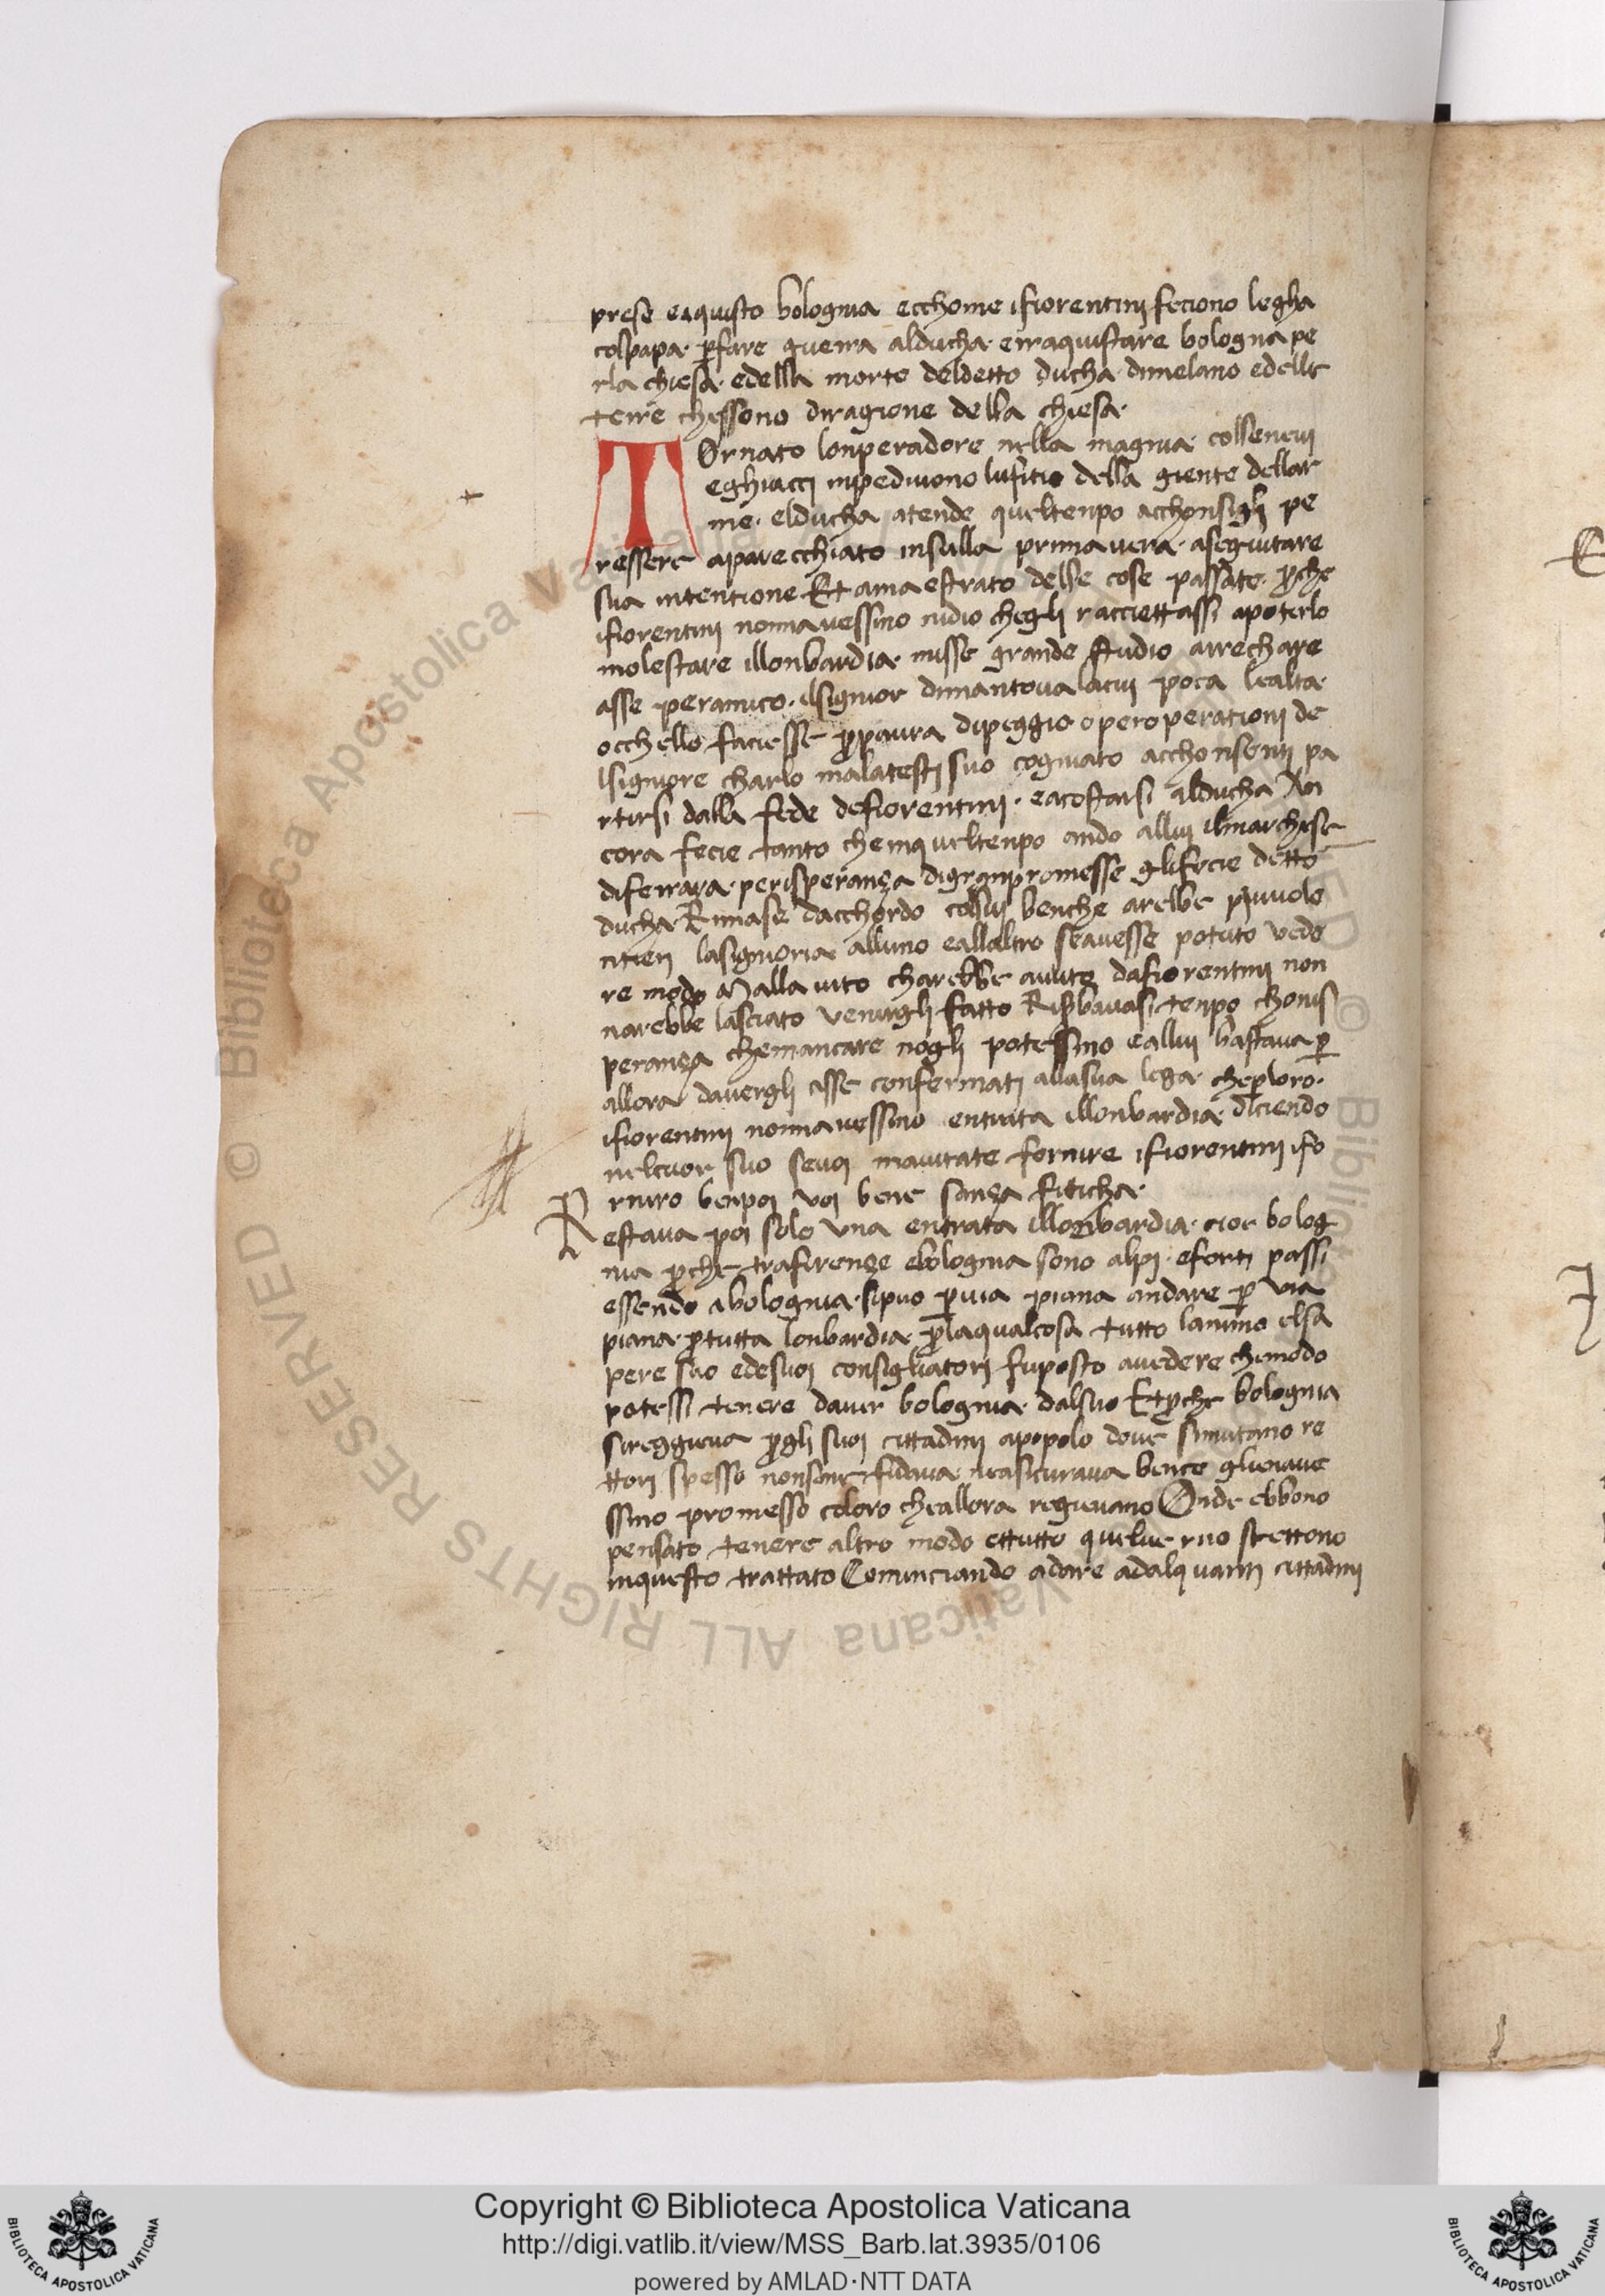 prese eaquisto bolognia ecchome ifiorentini feciono legha
colpapa· ꝑfare guerra alducha· erraquistare bologna pe
rla chiesa· edella morte deldetto ducha· dimelano edelle
terre chessono diragione della chiesa·
TOrnato lonperadore nella magnia· collenevi
eghiacci inpedivono lufitio della giente dellar
me· elducha atende queltenpo acchonsigli pe
ressere aparecchiato insulla primavera· aseguitare
sua intentione Et amaestrato delle cose passate· ꝑche
ifiorentini nonnavessino nidio chegli racciettassi apoterlo
molestare illonbardia· misse grande studio arrechare
asse peramico· ilsignior dimantova lacui poca lealta·
occhello faciesse ꝑpaura dipeggio operoperationi de
lsigniore charlo malatesti suo cogniato acchonsenti pa
rtirsi dalla fede defiorentini· eacostarsi alducha An
cora fecie tanto cheinqueltenpo ando allui ilmarchese
diferrara· perisperança digranpromesse glifecie detto
ducha Rimase dacchordo collui benche arebbe piuvole
ntieri lasignioria alluno eallaltro seavesse potuto vede
re modo Malla uito charebbe auuto dafiorentini non
narebbe lasciato venirgli fatto Riserbavasi tenpo chonis
perança chemancare nogli potessino eallui bastava ꝑ
allora davergli asse confermati allasua lega· cheꝑloro·
ifiorentini nonnavessino entrata illonbardia· diciendo
nelcuor suo sevoi mavitate fornire ifiorentini ifo
rniro benpoi voi bene sança faticha·
Restava poi solo una entrata illonbardia· cioe bolog
nia ꝑche trafirençe ebolognia sono alpi· eforti passi
essendo abolognia· sipuo ꝑvia piana andare ꝑ via
piana· ꝑtutta lonbardia· ꝑlaqualcosa tutto lanimo elsa
pere suo edesuoi consigliatori fuposto avedere chemodo
potessi tenere daver bolognia· dalsuo Etꝑche bolognia
sireggieva ꝑgli suoi cittadini apopolo dove simutano re
ttori spesso nonsene fidava· neasicurava bence glienave
ssino promesso coloro cheallora regievano Onde ebbono
pensato tenere altro modo ettutto quelverno stettono
inquesto trattato Cominciando adare adalquanti cittadini
Copyright © Biblioteca Apostolica Vaticana
http://digi.vatlib.it/view/MSS_Barb.lat.3935/0106
powered by AMLAD·NTT DATA
BIBLIOTECA APOSTOLICA VATICANA
BIBLIOTECA APOSTOLICA VATICANA